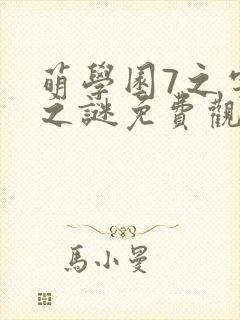 萌學園7之
之謎免費觀
馬小曼